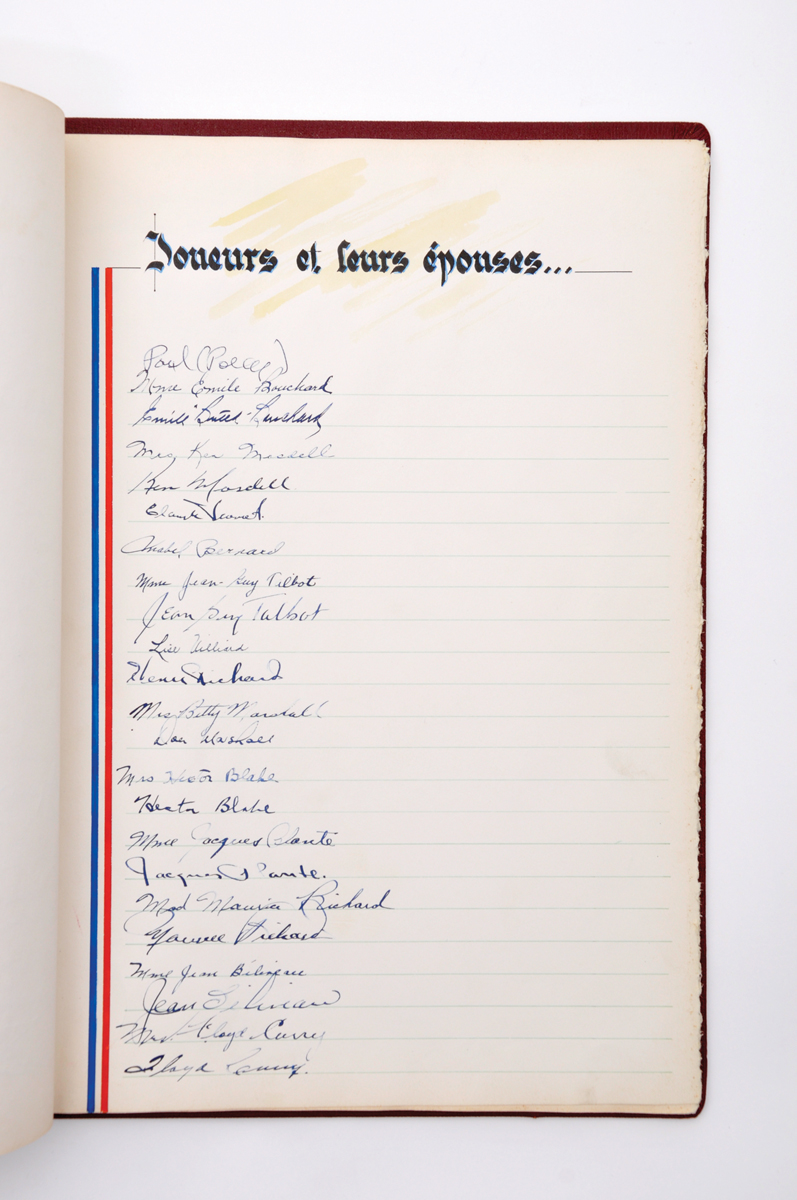 Joueurs et leurs épouses...
Paul
Mme Emile Bouchard
Emile "Butch" Bouchard
Mrs Ken Mosdell
Ken Mosdell
Claude
Bernard
Mme Jean-Guy Talbot
Jean Guy Talbot
Lise
Henri Richard
Mrs Betty Marshall
Don Marshall
Mrs Hector Blake
Hector Blake
Mme Jacques Plante
Jacques Plante.
Mad Maurice Richard
Maurice Richard
Mme Jean Béliveau
Jean Béliveau
Mrs. Floyd Curry
Floyd Curry.